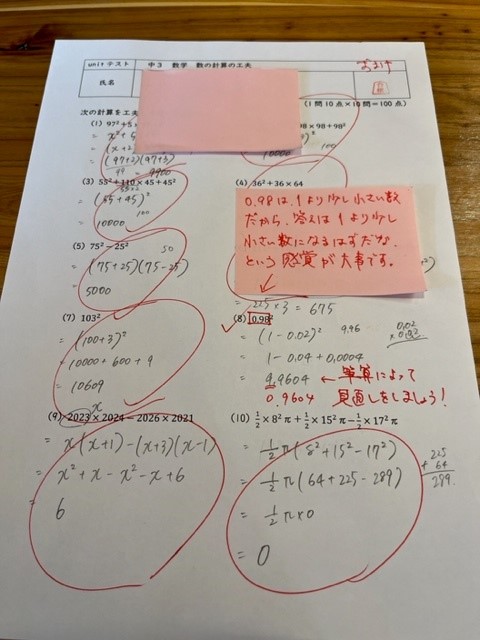 unitテスト 中3 数学 数の計算の工夫
氏名
(1問10点×10問=100点)
次の計算を工夫
(1) 97²+5
(x+2
(97+2)(97+3)
99
= 9900
98×98+98²
10000
100
(3) 55²+110×45+45²
= (55+45)²
100
= 10000
(4) 36²+36×64
0.98は、1より少し小さい数
だから、答えは1より少し
小さい数になるはずだな、
という感覚が大事です。
(5) 75²−25²
50
= (75+25)(75−25)
= 5000
= 225×3 = 675
(7) 103²
= (100+3)²
= 10000+600+9
= 10609
(8) 0.98²
= (1−0.02)²
= 1−0.04+0.0004
= 9.9604 ← 筆算によって
0.9604 見直しをしましょう!
9.96
0.02
(9) 2023×2024−2026×2021
x
= x(x+1)−(x+3)(x−1)
= x²+x−x²−x+6
= 6
(10) ½×8²π+½×15²π−½×17²π
= ½π(8²+15²−17²)
= ½π(64+225−289)
= ½π×0
= 0
225
+ 64
289